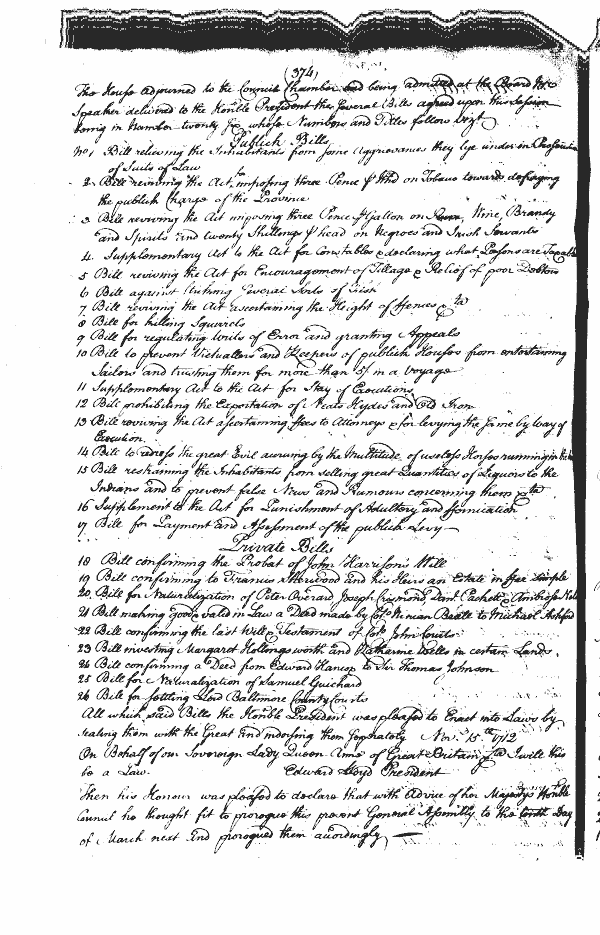 (374)
The House adjourned to the Council Chamber and being admitted at the Board Mr
Speaker delivered to the Honble President the several Bills agreed upon this Session
being in Number twenty six whose Numbers and Titles follows Vizt
Publick Bills
No 1 Bill relieving the Inhabitants from some Aggrievances they lye under in Prosecution
of Suits of Law
2 Bill reviving the Act, imposing three Pence ⅌ Hhd on Tobacco towards defraying
the publick Charge of the Province
3 Bill reviving the Act imposing three Pence ⅌ Gallon on Rum, Wine, Brandy
and Spirits and twenty Shillings ⅌ head on Negroes and Irish Servants
4 Supplementary Act to the Act for Constables & declaring what Persons are Taxable
5 Bill reviving the Act for Encouragement of Tillage & Relief of poor Debtors
6 Bill against
7 Bill reviving the Act ascertaining the Height of ffences &ca
8 Bill for killing Squirrels
9 Bill for regulating Writs of Error and granting Appeals
10 Bill to prevent Victuallers and Keepers of publick Houses from entertaining
Sailors and trusting them for more than 5/ in a Voyage
11 Supplementary Act to the Act for Stay of Executions
12 Bill prohibiting the Exportation of Neats Hydes and Old Iron
13 Bill reviving the Act ascertaining ffees to Attorneys & for levying the same by way of
Execution.
14 Bill to redress the great Evil accruing by the Multitude of useless Horses running in
15 Bill restraining the Inhabitants from selling great Quantities of Liquors to the
Indians and to prevent false News and Rumours concerning them &ca
16 Supplement to the Act for Punishment of Adultery and ffornication
17 Bill for Payment and Assessment of the publick Levy
Private Bills
18 Bill confirming the Probat of John Harrison's Will
19 Bill confirming to Francis Sherwood and his Heirs an Estate in ffee Simple
20 Bill for Naturalization of Peter Joseph & Ambrose
21 Bill making good & valid in Law a Deed made by Colo Ninian Beall to Michael Ashford
22 Bill confirming the last Will & Testament of John
23 Bill investing Margaret Hollingsworth and Katherine Wells in certain Lands
24 Bill confirming a Deed from Edward to Sir Thomas Johnson
25 Bill for Naturalization of Samuel Guichard
26 Bill for settling Lord Baltimore County Courts
All which said Bills the Honble President was pleased to Enact into Laws by
sealing them with the Great and indorsing them seperately Nov. 15th 1712
On Behalf of our Sovereign Lady Queen Anne of Great Britain &ca I will this
be a Law. Edward Lloyd President
Then his Honour was pleased to declare that with Advice of her Majestys Honble
Council he thought fit to prorogue this present General Assembly to the tenth Day
of March next and prorogued them accordingly